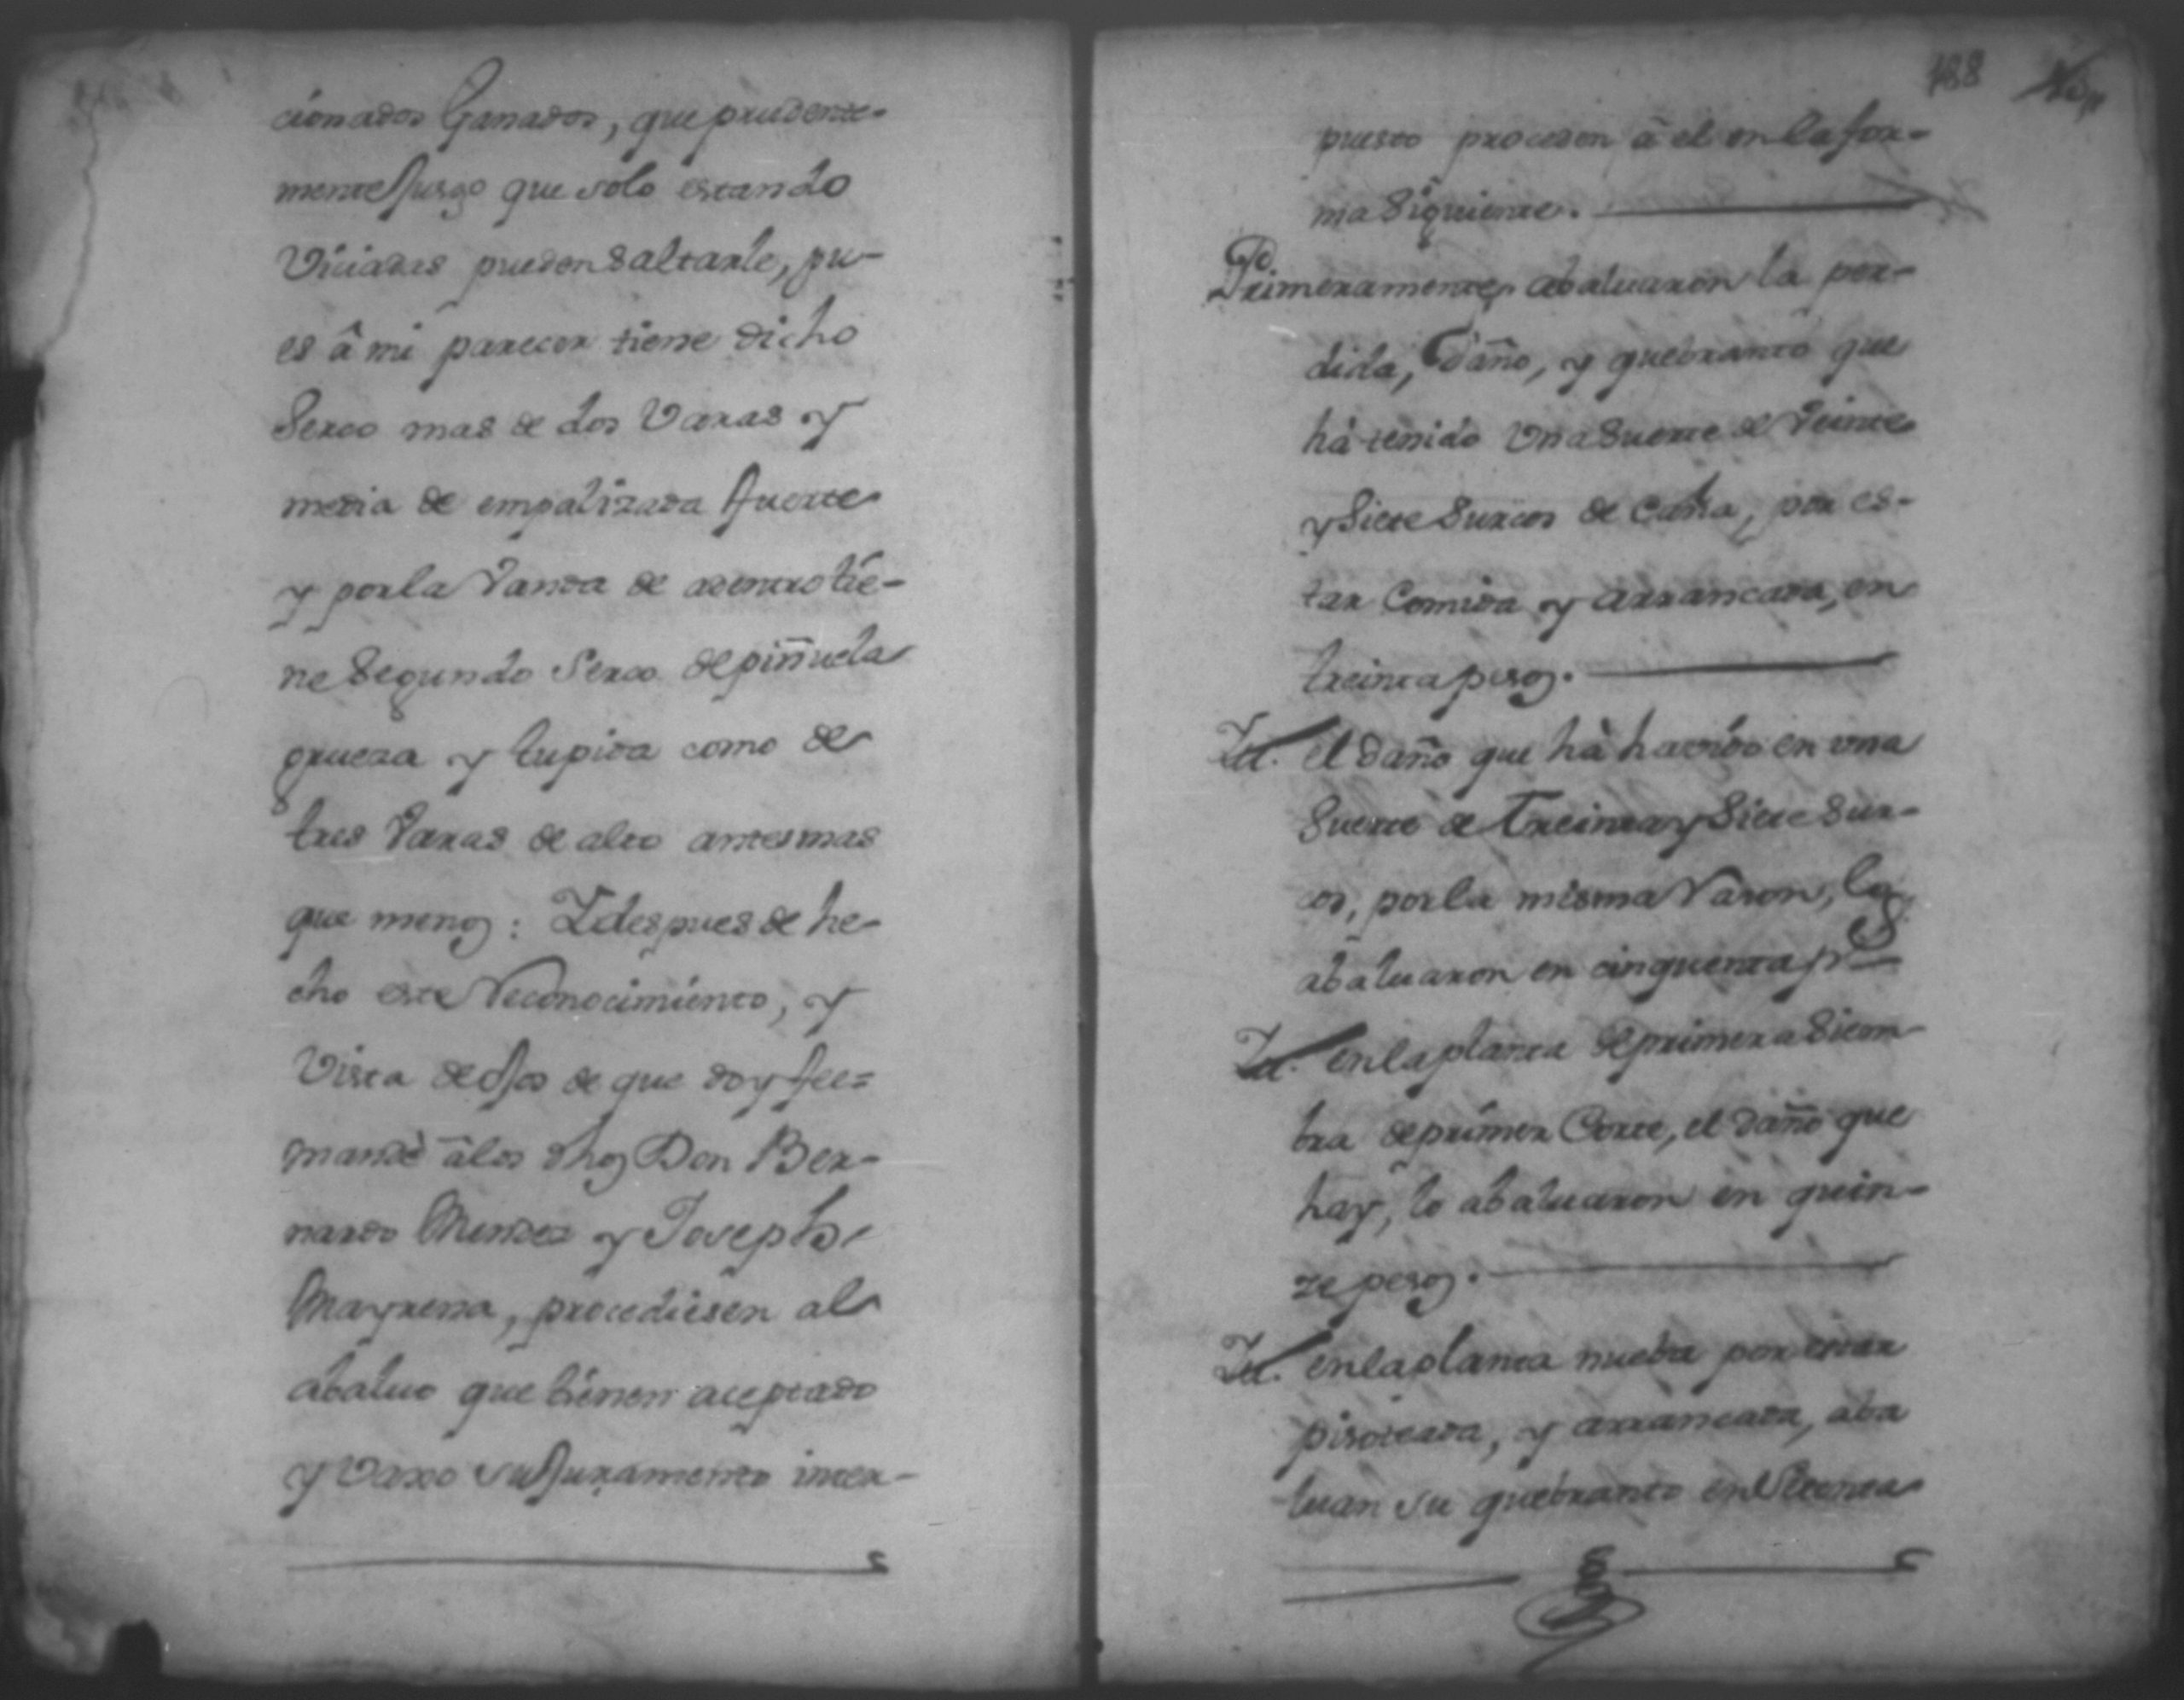 cionados Ganados, que prudente-
mente Jusgo que solo estando
Viciadas pueden Saltarle, pu-
es â mi parecer tiene dicho
Serco mas de dos Varas y
media de empalizada fuerte
y por la Vanda de adentro tie-
ne Segundo Serco de piñuela
grueza y tupida como de
tres Varas de alto antes mas
que menos: Y despues de he-
cho este Reconocimiento, y
Vista de ojos de que doy fee=
mandè â los dhos Don Ber-
nardo Mendez y Joseph
Mayrena, procediesen al
abaluo que tienen aceptado
y vaxo su Juramento inter-
188
puesto proceden â el en la for-
ma Siguiente.
Primeramente abaluaron la per-
dida, daño, y quebranto que
hà tenido Una Suerte de Veinte
y Siete Surcos de Caña, por es-
tar Comida y arrancada, en
treinta pesos.
Yd. el daño que hà havido en una
Suerte de Treinta y Siete Sur-
cos, por la misma Razon, los
abaluaron en cinquenta ps
Yd. en la planta de primera Siem-
bra de primer Corte, el daño que
hay, lo abaluaron en quin-
ze pesos.
Yd. en la planta nueba por estar
pisoteada, y arrancada, aba
luan su quebranto en